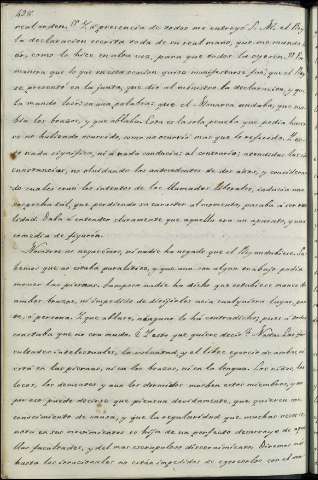 408
real orden. 2º Y á presencia de todos me entregó S. M. el Rey
la declaracion escrita toda de su real mano, que me mando
en, como lo hice en alta voz, para que todos la oyesen. De
manera que lo que en esta ocasion quiso manifestarse fué, que el Rey
se presentó en la junta, que dió al ministro la declaracion, y que
la mandó leer sin una palabra: que el Monarca andaba, que mo-
bia los brazos, y que ablaba. Esta es la sola prueba que podia hacer-
se no habiendo ocurrido, como no ocurrió mas que lo referido. Y esto
nada significa, ni á nada conducia: al contrario; atendidas las cir-
cunstancias, no olvidando los antecedentes de dos años, y consideran-
do cuales eran los intentos de los llamados liberales, inducia una
sospecha tal, que perdiendo su caracter al momento, pasaba á ser rea-
lidad. Daba á entender claramente que aquello era un aparato, y una
comedia de figuron.
Nosotros no negaremos, ni nadie ha negado que el Rey anduviese. Sa-
bemos que no estaba paralitico, y que aun con algun trabajo podia
mover las piernas. Tampoco nadie ha dicho que estubiese manco de
ambos brazos, ni impedido de dirijirlos acia cualquiera lugar, par-
te, ó persona. Y que ablase, ninguno lo ha contradicho; pues á todos
constaba que no era mudo. ¿Y esto que quiere decir? Nada. Las fa-
cultades intelectuales, la voluntad, y el libre egercicio de ambas, no
estan en las piernas, ni en los brazos, ni en la lengua. Los niños, los
locos, los dementes y aun los dormidos mueben estos miembros, y no
por eso puede decirse que piensan debidamente, que quieren con
conocimiento de causa, y que la regularidad que muchas veces se
nota en sus movimientos es hija de un perfecto desarroyo de aque-
llas facultades, y del mas escrupuloso discernimiento. Diremos mas:
hasta los irracionales no están impedidos de egercerlos con el ma-